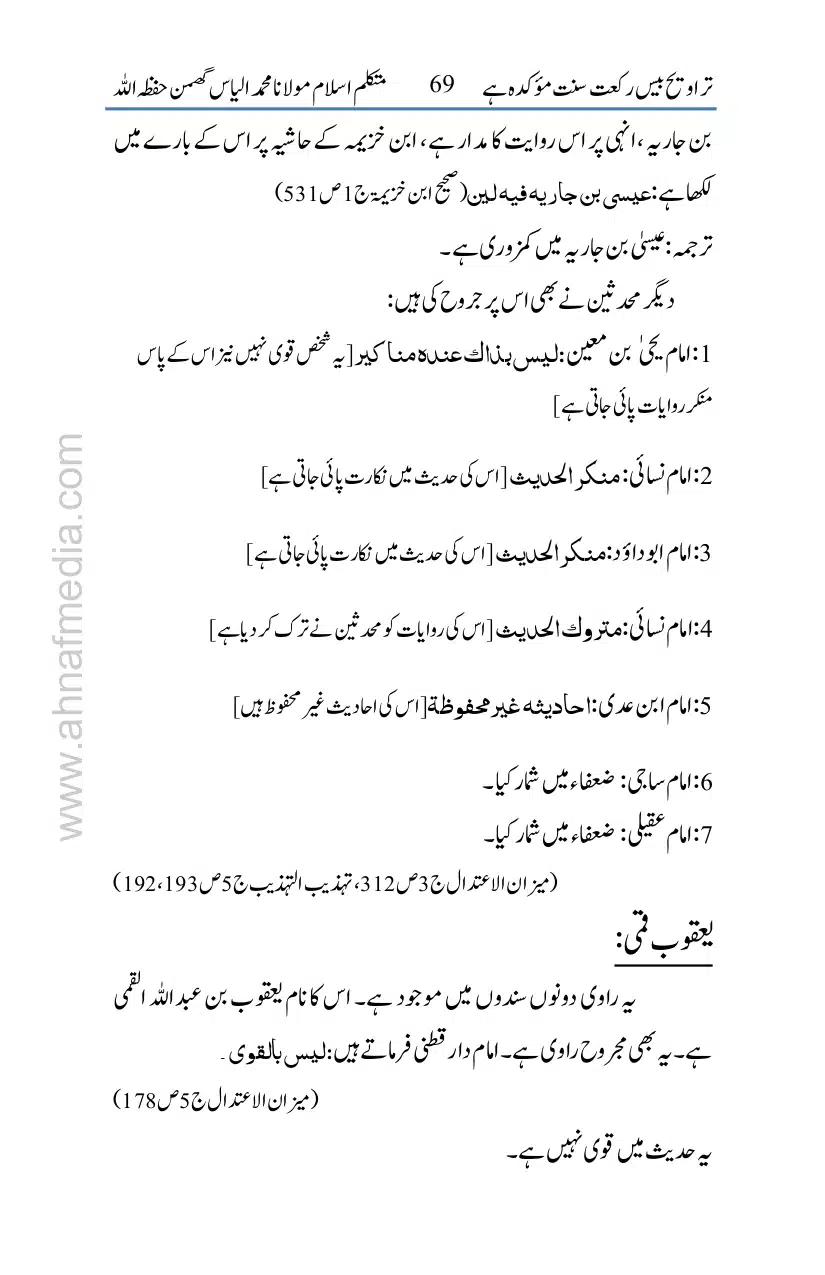 تراویح بیس رکعت سنت مؤکدہ ہے 69 متکلم اسلام مولانا محمد الیاس گھمن حفظہ اللہ
بن جاریہ ،انہی پر اس روایت کا مدار ہے، ابن خزیمہ کے حاشیہ پر اس کے بارے میں
لکھا ہے:عیسی بن جاریه فیه لین(صحیح ابن خزیمۃ ج1ص531)
ترجمہ:عیسیٰ بن جاریہ میں کمزوری ہے۔
دیگر محدثین نے بھی اس پر جروح کی ہیں:
1:امام یحیٰ بن معین:لیس بذاك عنده مناکیر[یہ شخص قوی نہیں نیز اس کے پاس
منکر روایات پائی جاتی ہے]
2:امام نسائی: منکر الحدیث[اس کی حدیث میں نکارت پائی جاتی ہے]
3:امام ابوداؤد:منکر الحدیث[اس کی حدیث میں نکارت پائی جاتی ہے]
4:امام نسائی:متروك الحدیث[اس کی روایات کو محدثین نے ترک کر دیا ہے]
5:امام ابن عدی:احادیثه غیر محفوظة[اس کی احادیث غیر محفوظ ہیں]
6:امام ساجی: ضعفاء میں شمار کیا۔
7:امام عقیلی: ضعفاء میں شمار کیا۔
(میزان الاعتدال ج3ص312، تہذیب التہذیب ج5ص192،193)
یعقوب قمی:
یہ راوی دونوں سندوں میں موجود ہے۔ اس کا نام یعقوب بن عبد اللہ القمی
ہے۔یہ بھی مجروح راوی ہے۔امام دار قطنی فرماتے ہیں:لیس بالقوی۔
(میزان الاعتدال ج5ص178)
یہ حدیث میں قوی نہیں ہے۔
www.ahnafmedia.com